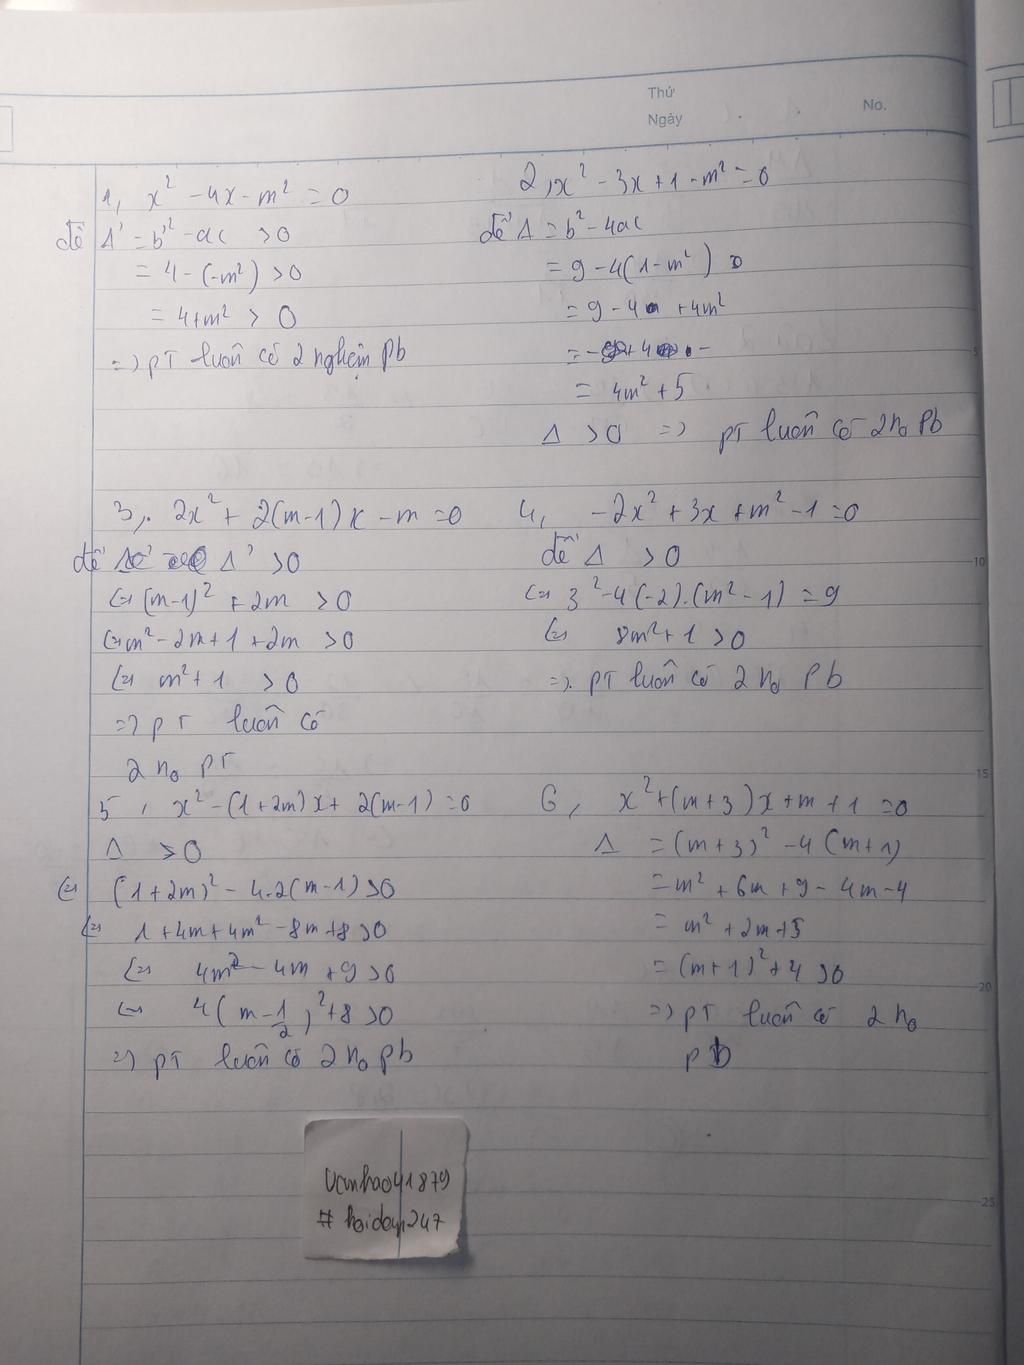 Thứ
Ngày
No.
1, x² - 4x - m² = 0
để Δ' = b'² - ac > 0
= 4 - (-m²) > 0
= 4+m² > 0
=> pT luôn có 2 nghiệm Pb
2, x² - 3x + 1 - m² = 0
để Δ = b² - 4ac
= 9 - 4(1 - m²)
= 9 - 4 + 4m²
= 4m² + 5
Δ > 0 => pT luôn có 2n₀ Pb
5
3, 2x² + 2(m-1)x - m = 0
để Δ' > 0
<=> (m-1)² + 2m > 0
<=> m² - 2m + 1 + 2m > 0
<=> m² + 1 > 0
=> pT luôn có
2 n₀ pT
4, -2x² + 3x + m² - 1 = 0
để Δ > 0
10
<=> 3² - 4(-2).(m² - 1) = 9
<=> 8m² + 1 > 0
=> pT luôn có 2 n₀ Pb
15
5, x² - (1 + 2m)x + 2(m-1) = 0
Δ > 0
<=> (1 + 2m)² - 4.2(m-1) > 0
<=> 1 + 4m + 4m² - 8m + 8 > 0
<=> 4m² - 4m + 9 > 0
<=> 4(m - 1/2)² + 8 > 0
=> pT luôn có 2 n₀ pb
6, x² + (m+3)x + m + 1 = 0
Δ = (m+3)² - 4(m+1)
= m² + 6m + 9 - 4m - 4
= m² + 2m + 5
= (m+1)² + 4 > 0
20
=> pT luôn có 2 n₀
pb
#hoidap247
25